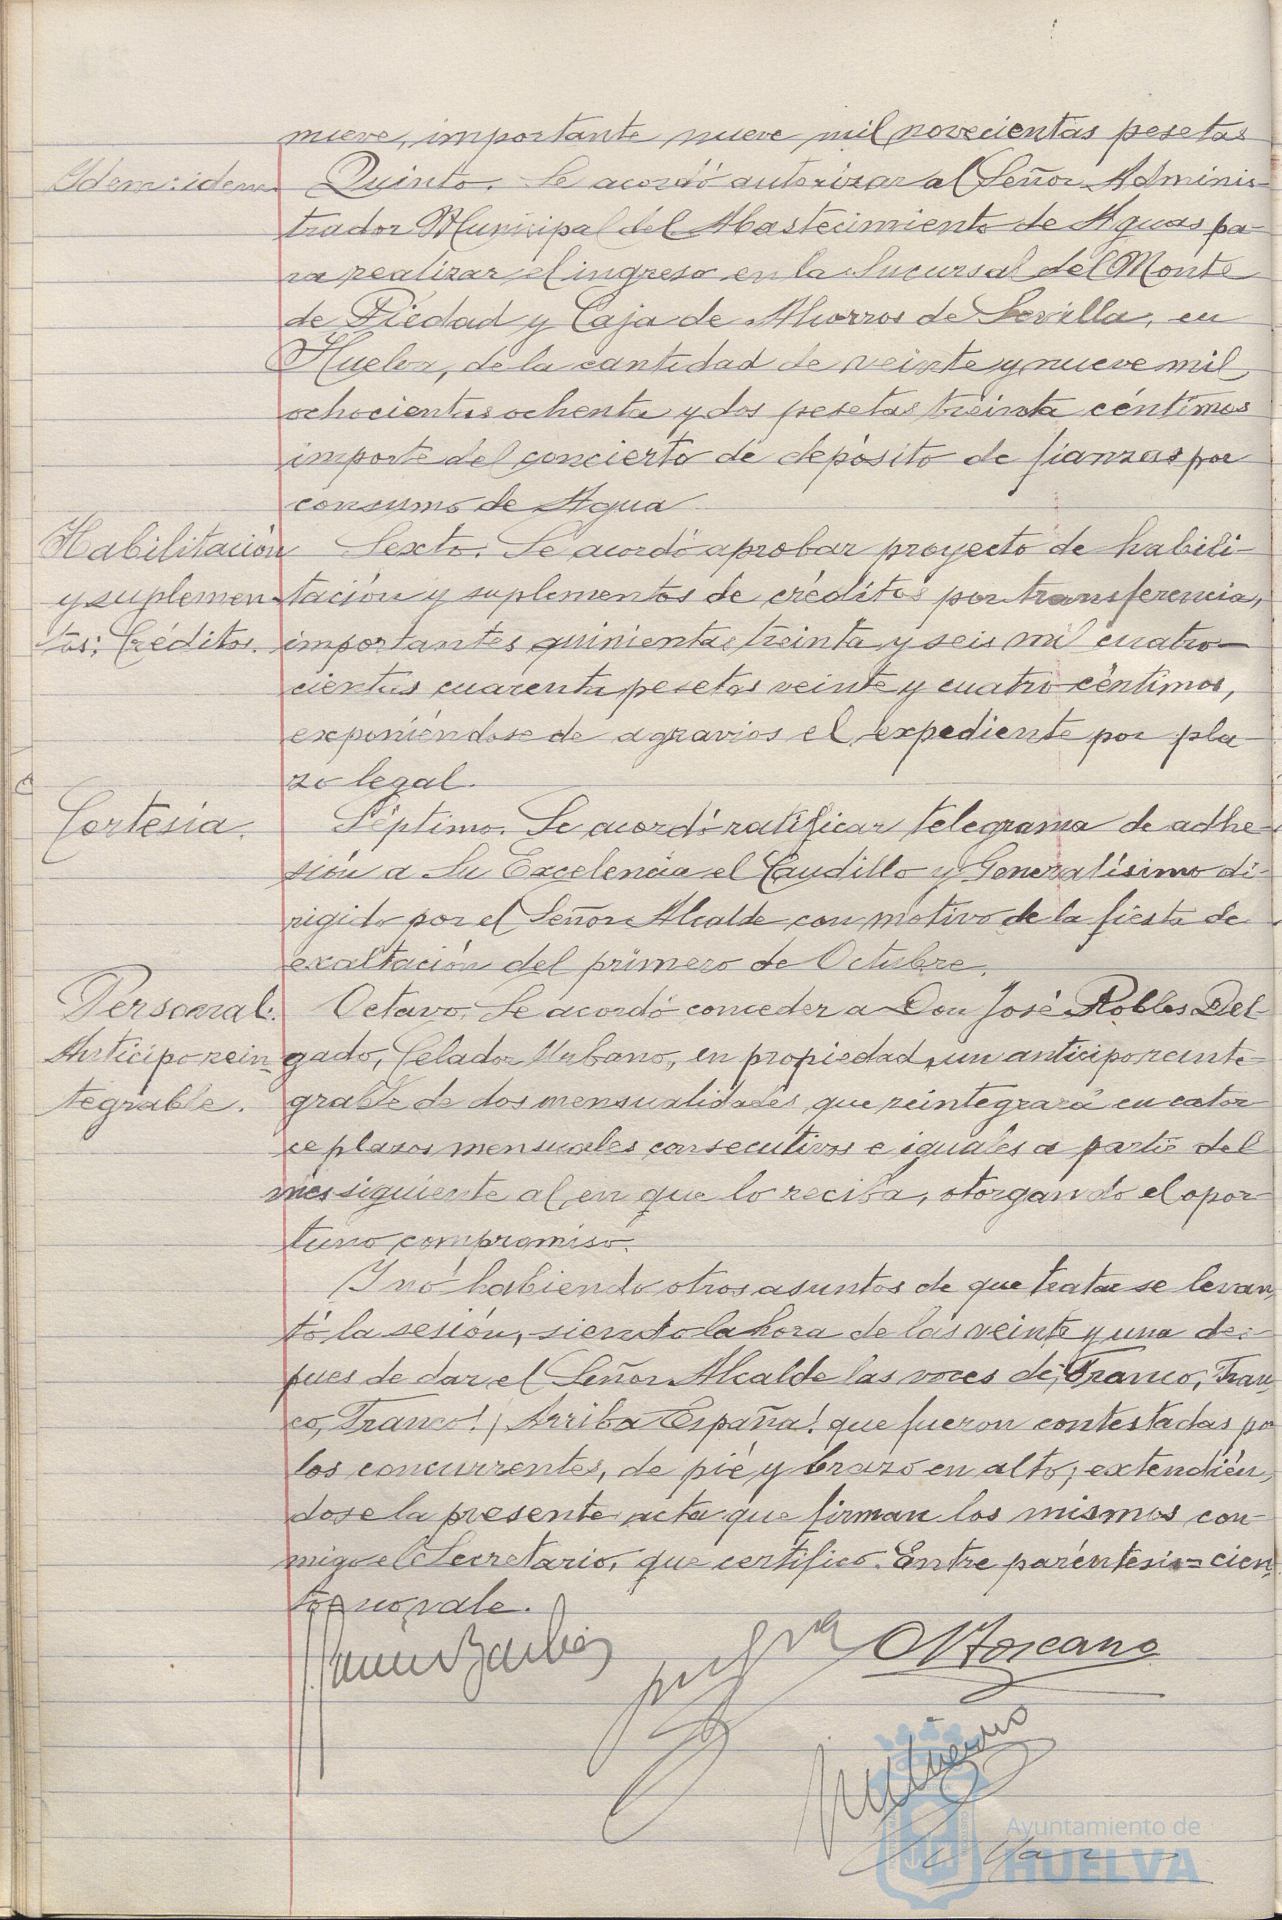 nueve, importante nueve mil novecientas pesetas
Idem: idem. Quinto. Se acordó autorizar al Señor Adminis-
trador Municipal del Abastecimiento de Aguas pa-
ra realizar el ingreso en la Sucursal del Monte
de Piedad y Caja de Ahorros de Sevilla, en
Huelva, de la cantidad de veinte y nueve mil
ochocientas ochenta y dos pesetas treinta céntimos
importe del concierto de depósito de fianzas por
consumo de Agua
Habilitación Sexto. Se acordó aprobar proyecto de habili-
y suplemen- tación y suplementos de créditos por transferencia,
tos: Créditos. importantes quinientas treinta y seis mil cuatro-
cientas cuarenta pesetas veinte y cuatro céntimos,
exponiéndose de agravios el expediente por pla-
zo legal.
Cortesía. Séptimo. Se acordó ratificar telegrama de adhe-
sión a Su Excelencia el Caudillo y Generalísimo di-
rigido por el Señor Alcalde con motivo de la fiesta de
exaltación del primero de Octubre.
Personal: Octavo. Se acordó conceder a Don José Robles Del-
Anticipo rein- gado, Celador Urbano, en propiedad, un anticipo reinte-
tegrable. grable de dos mensualidades que reintegrará en cator-
ce plazos mensuales consecutivos e iguales a partir del
mes siguiente al en que lo reciba, otorgando el opor-
tuno compromiso.
Y nó habiendo otros asuntos de que tratar se levan-
tó la sesión, siendo la hora de las veinte y una des-
pues de dar el Señor Alcalde las voces de ¡Franco, Fran-
co, Franco! ¡Arriba España! que fueron contestadas po
los concurrentes, de pié y brazo en alto; extendién-
dose la presente acta que firman los mismos con-
migo el Secretario, que certifico. Entre paréntesis=cien-
to= no vale.
OMoscano
Ayuntamiento de
HUELVA